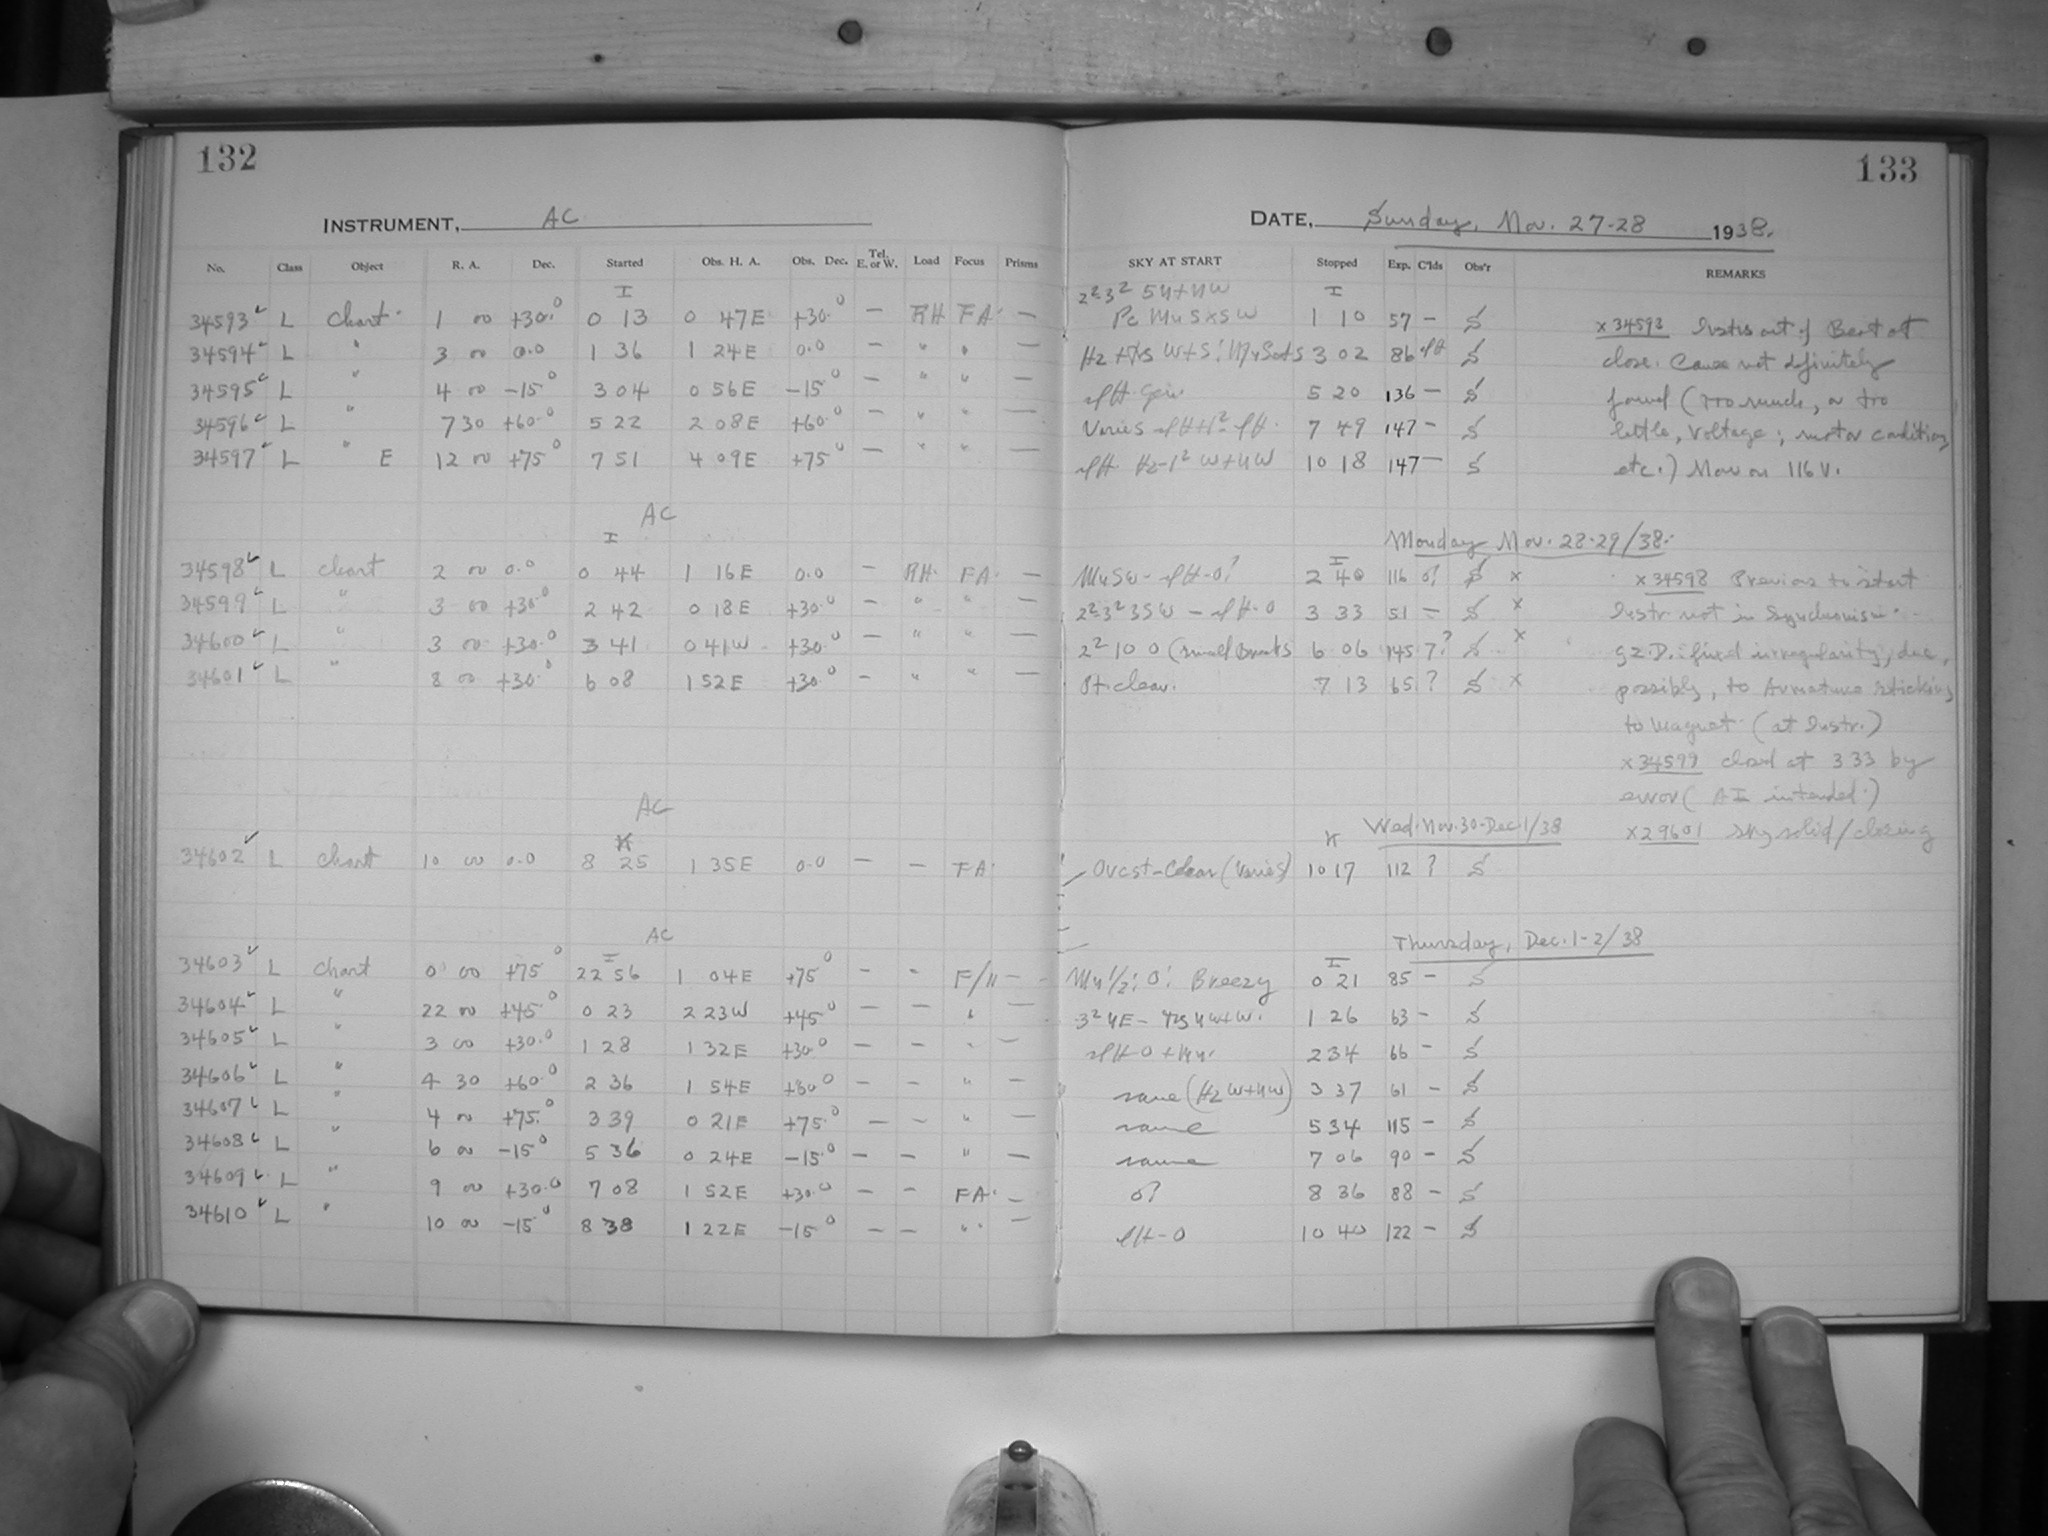 132
133
INSTRUMENT, AC
DATE, Sunday, Nov. 27-28 1938.
No. Class Object R. A. Dec. Started Obs. H. A. Obs. Dec. Tel. E. or W. Load Focus Prisms SKY AT START Stopped Exp. C'lds Obs'r REMARKS
I I
34593 L Chart 1 00 +30.0 0 13 0 47E +30.0 — RH FA — 1 10 57 — S x 34593 Instr out of Beat at
34594 L " 3 00 0.0 1 36 1 24E 0.0 — " " — 3 02 86 S close. Cause not definitely
34595 L " 4 00 -15.0 3 04 0 56E -15.0 — " " — 5 20 136 — S found (too much, or too
34596 L " 7 30 +60.0 5 22 2 08E +60.0 — " " — Varies 7 49 147 — S little, voltage; motor condition,
34597 L " E 12 00 +75.0 7 51 4 09E +75.0 — " " — 10 18 147 — S etc.) Now on 116 V.
AC
Monday Nov. 28-29/38.
I I
34598 L chart 2 00 0.0 0 44 1 16E 0.0 — RH FA — 2 40 116 0? S x x 34598 Previous to start
34599 L " 3 00 +30.0 2 42 0 18E +30.0 — " " — 3 33 51 — S x Instr not in Synchronism.
34600 L " 3 00 +30.0 3 41 0 41W +30.0 — " " — 6 06 145 7? S x irregularity, due,
34601 L " 8 00 +30.0 6 08 1 52E +30.0 — " " — Pt. clear. 7 13 65 ? S x possibly, to Armature sticking
to magnet (at Instr.)
x 34599 closed at 3 33 by
error (AI intended.)
AC
Wed. Nov. 30-Dec. 1/38
x 29601 sky solid/closing
K K
34602 L chart 10 00 0.0 8 25 1 35E 0.0 — — FA Ovcst-Clear (Varies) 10 17 112 ? S
AC
Thursday, Dec. 1-2/38
I I
34603 L chart 0 00 +75.0 22 56 1 04E +75.0 — - F/11 — Breezy 0 21 85 — S
34604 L " 22 00 +45.0 0 23 2 23W +45.0 — — " — 1 26 63 — S
34605 L " 3 00 +30.0 1 28 1 32E +30.0 — — " — 2 34 66 — S
34606 L " 4 30 +60.0 2 36 1 54E +60.0 — — " — same (Hz W+NW) 3 37 61 — S
34607 L " 4 00 +75.0 3 39 0 21E +75.0 — — " — same 5 34 115 — S
34608 L " 6 00 -15.0 5 36 0 24E -15.0 — — " — same 7 06 90 — S
34609 L " 9 00 +30.0 7 08 1 52E +30.0 — — FA — 0? 8 36 88 — S
34610 L " 10 00 -15.0 8 38 1 22E -15.0 — — " — 10 40 122 — S